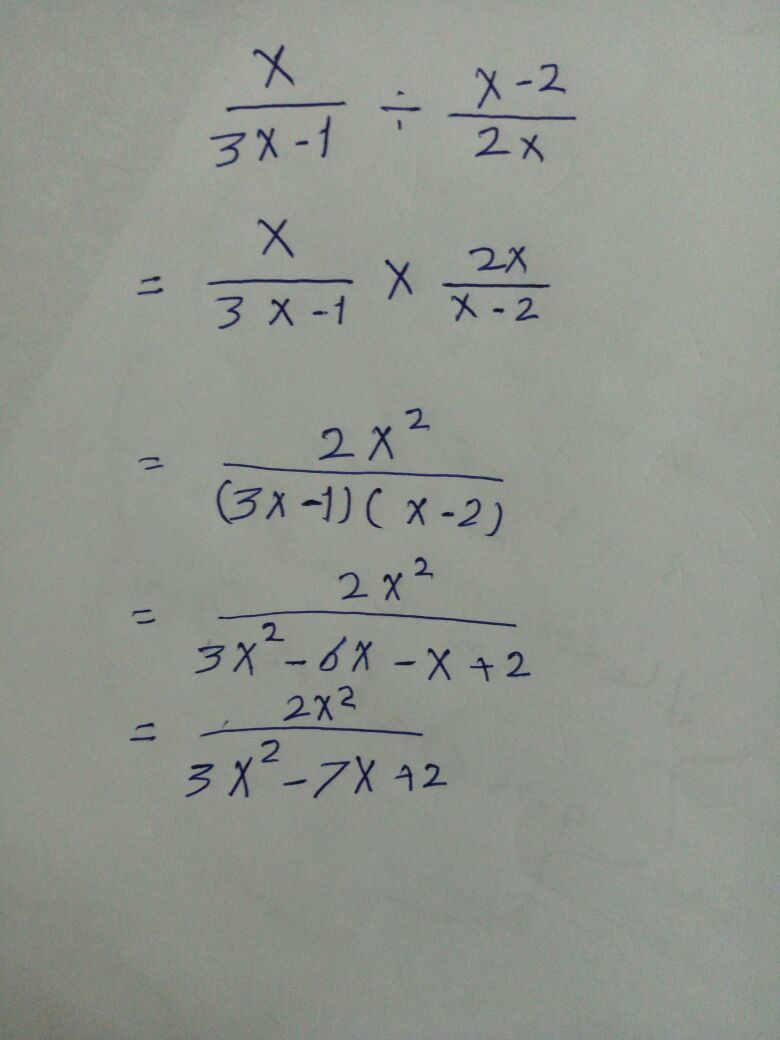 x/(3x-1) ÷ (x-2)/(2x)
= x/(3x-1) × 2x/(x-2)
= 2x²/((3x-1)(x-2))
= 2x²/(3x²-6x-x+2)
= 2x²/(3x²-7x+2)